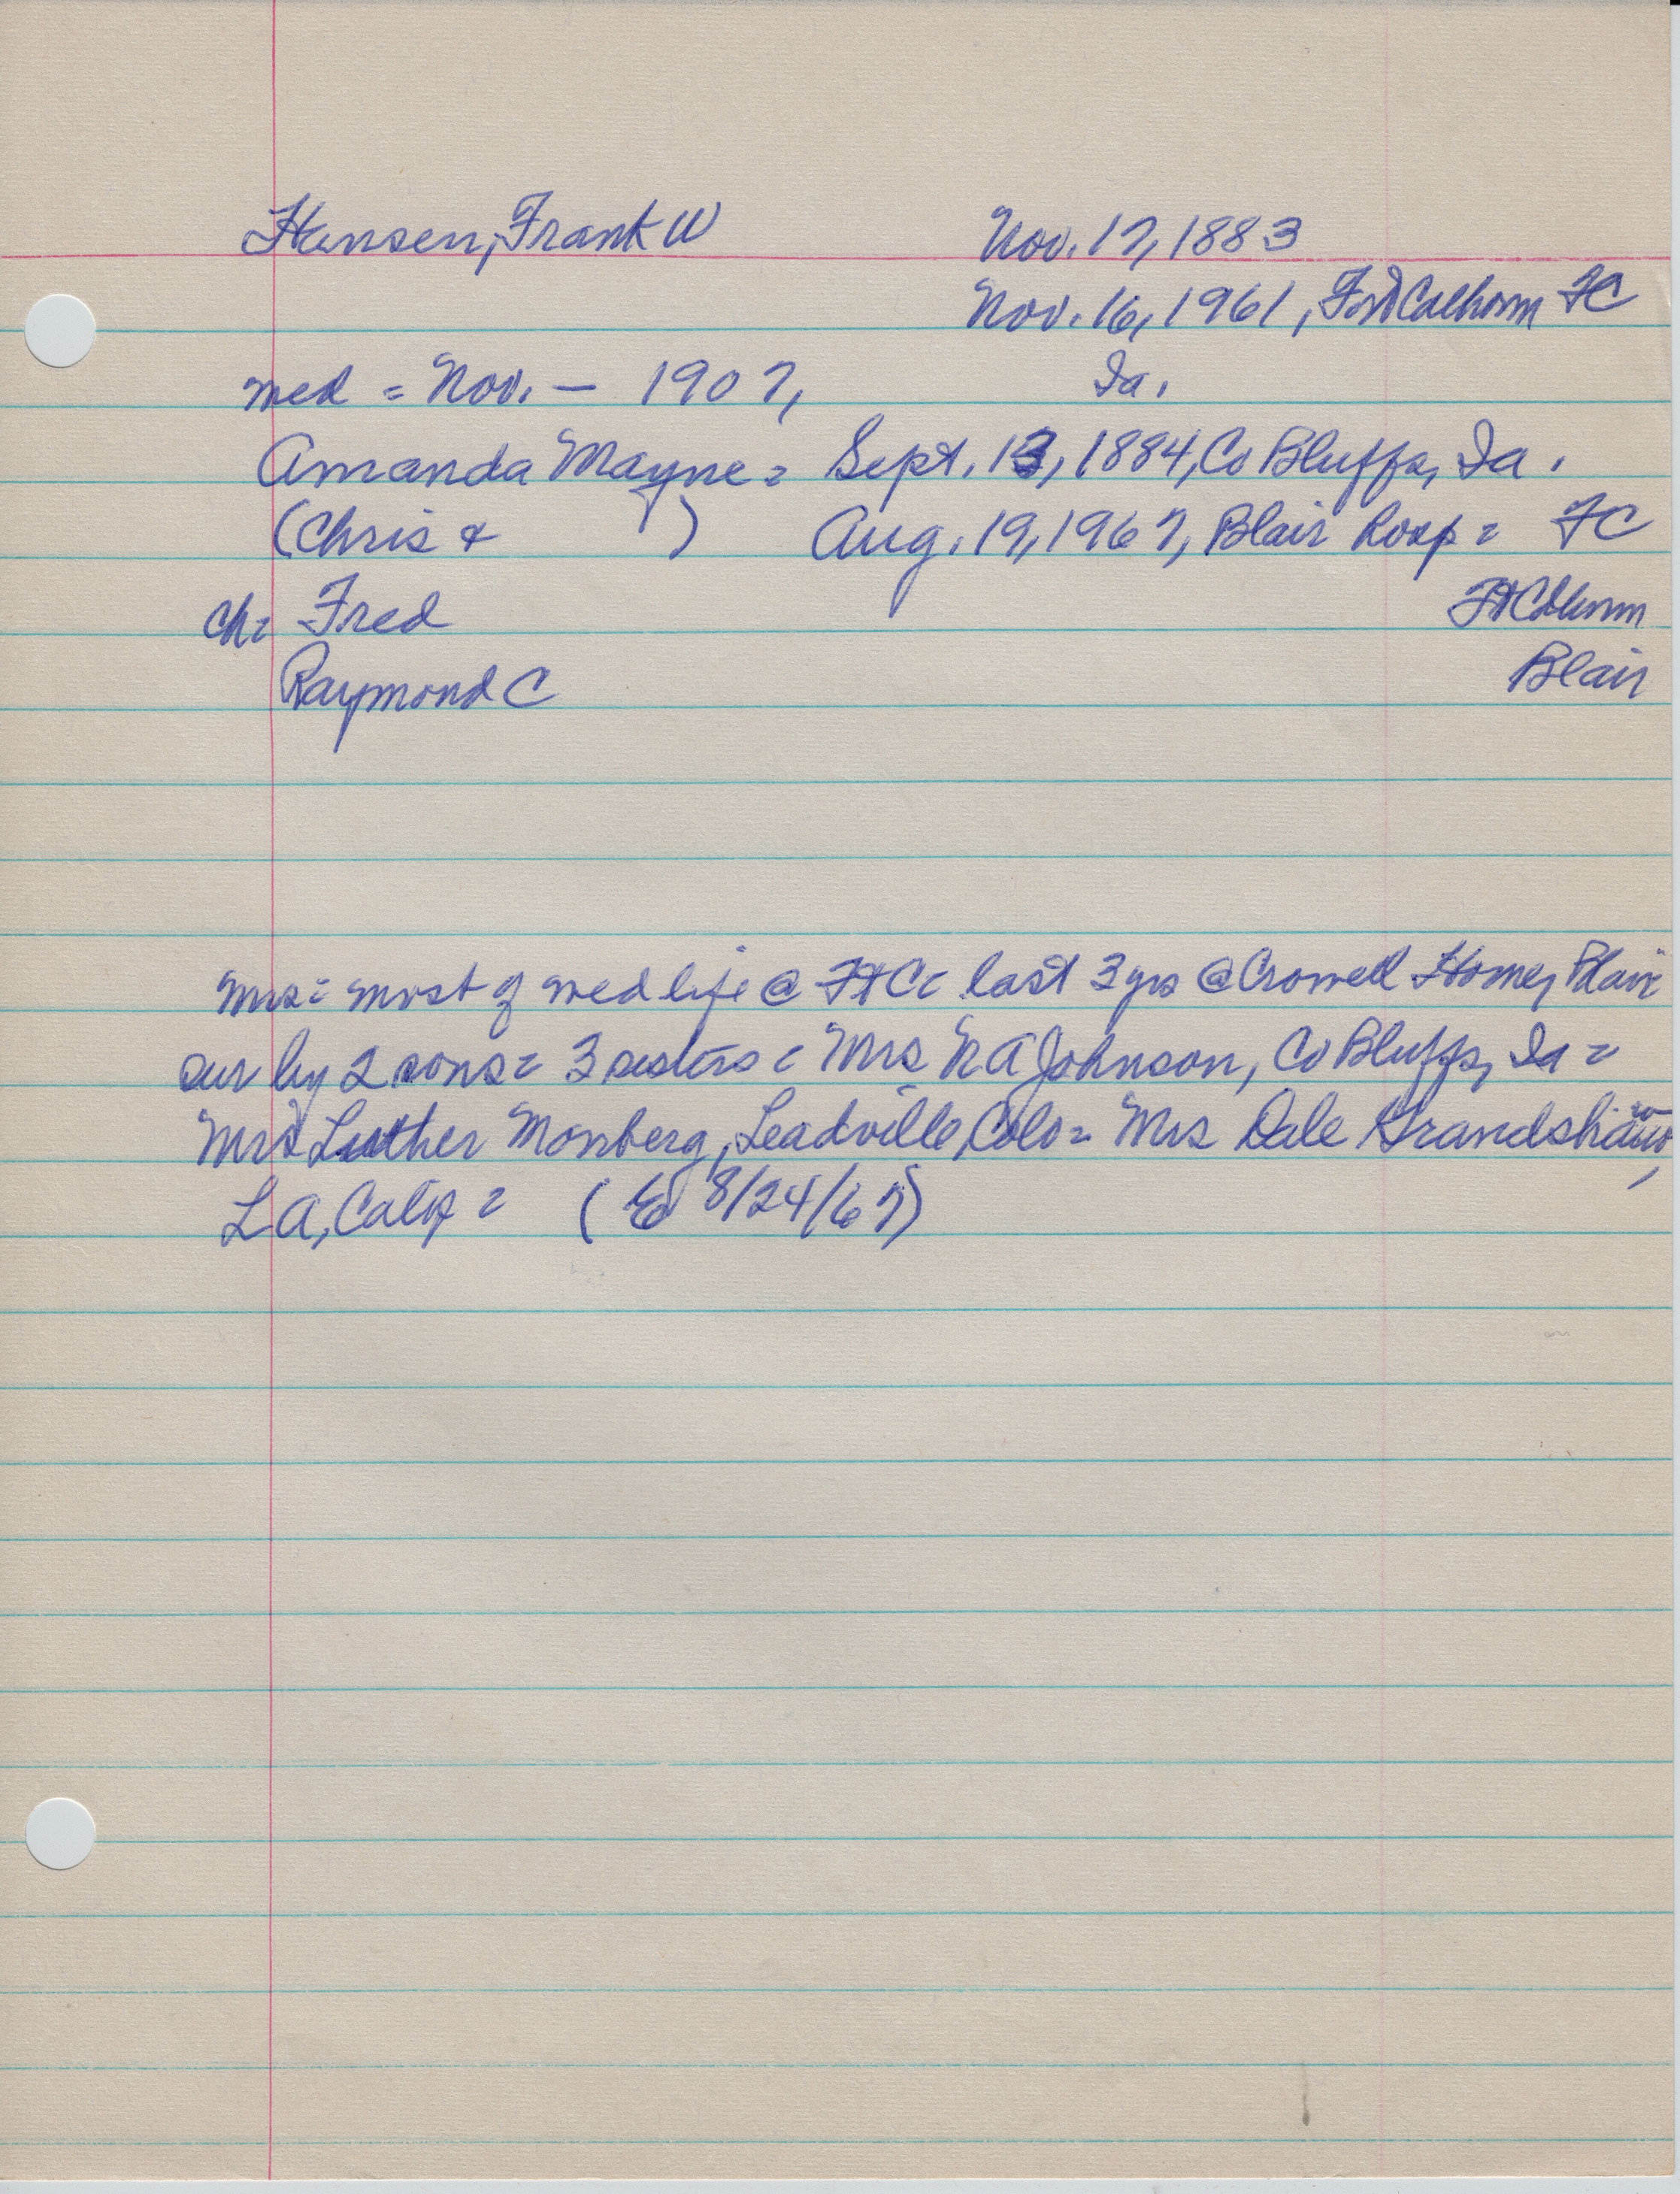 Hansen, Frank W Nov. 17, 1883
Nov. 16, 1961, Fort Calhoun FC
med = Nov. — 1907, Ia.
Amanda Mayne = Sept. 13, 1884, Co Bluffs, Ia.
(Chris & ) Aug. 19, 1967, Blair hosp = FC
ch = Fred Ft Calhoun
Raymond C Blair
Mrs = most of med life @ Ft C = last 3 yrs @ Crowell Home, Blair
sur by 2 sons = 3 sisters = Mrs N A Johnson, Co Bluffs, Ia =
Mrs Luther Monberg, Leadville, Colo = Mrs Dale Grandshaw,
LA, Calif = ( 8/24/67)